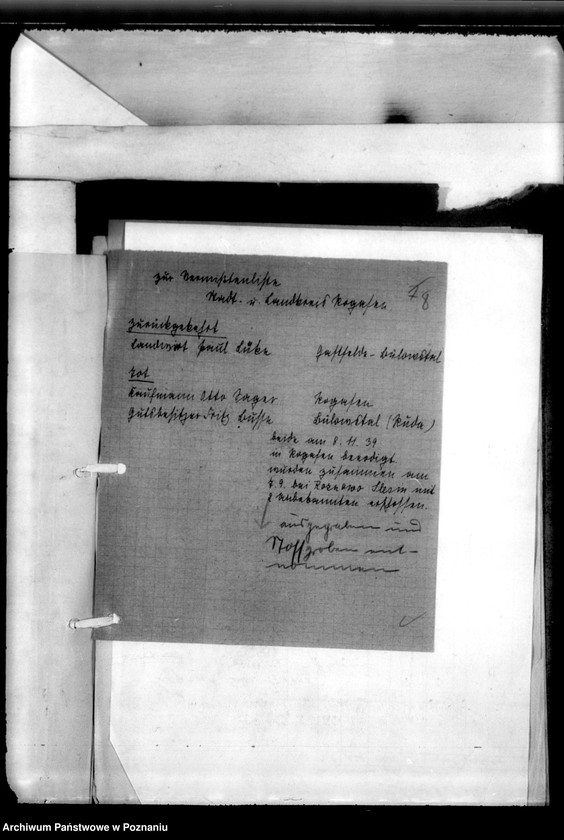 zur Vermißtenliste
Stadt- u. Landkreis Rogasen
7 8
zurückgekehrt
Landwirt Paul Luke Gastfelde-Bülowstal
tot
Kaufmann Otto Sager Rogasen
Gutsbesitzer Fritz Busse Bülowstal (Ruda)
beide am 8.11.39
in Rogasen beerdigt
wurden zusammen am
7.9. bei Roznowo mit
2 unbekannten erschossen.
ausgegraben und
Stoffproben ent-
nommen
Archiwum Państwowe w Poznaniu